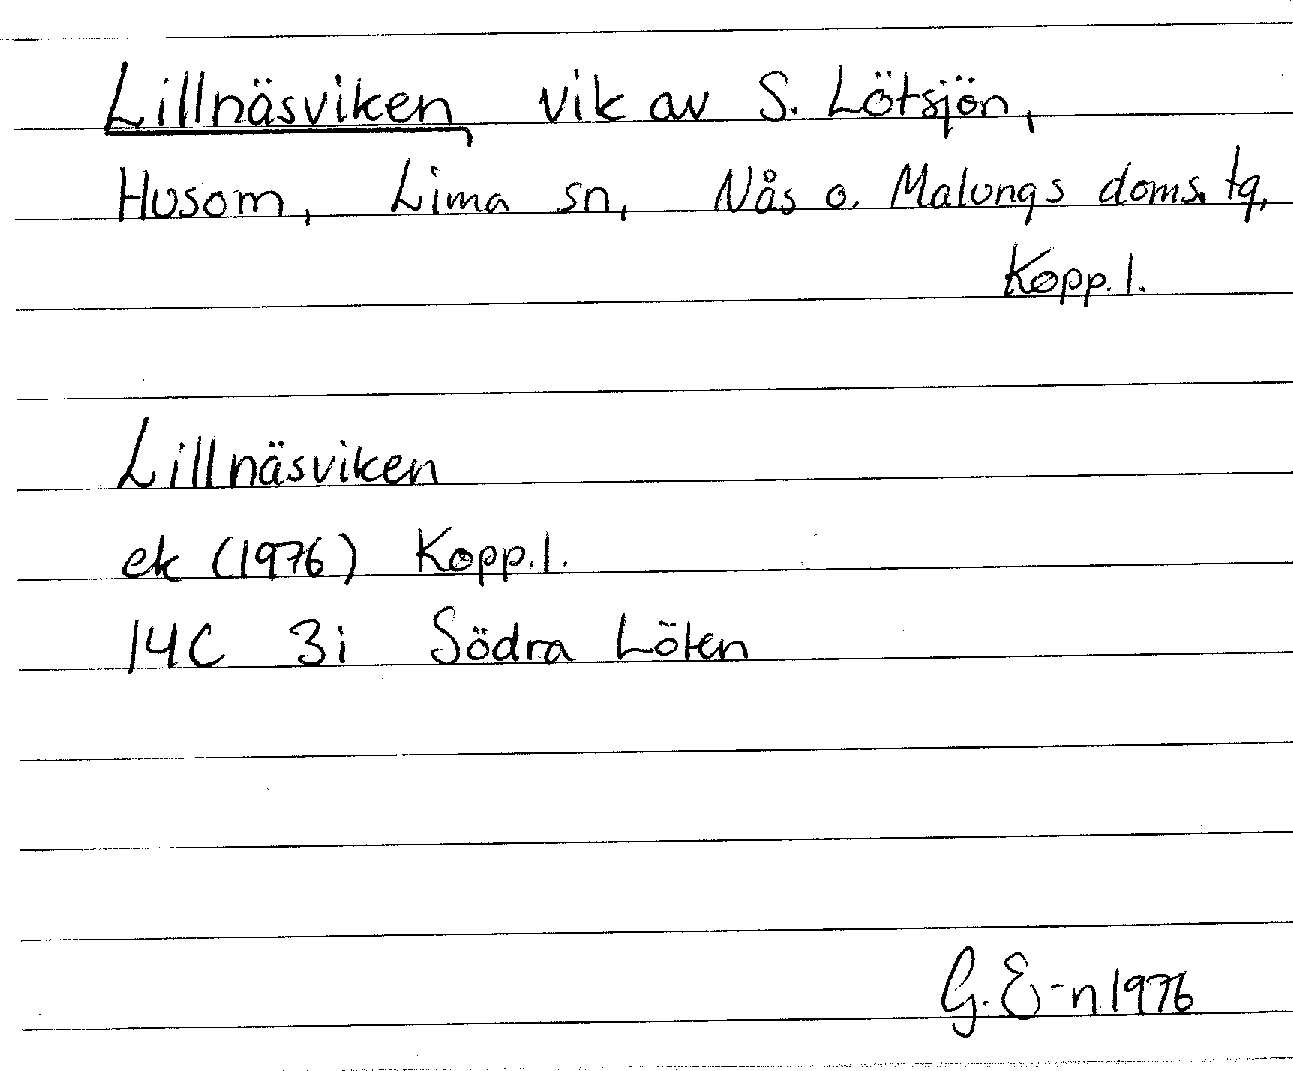 Lillnäsviken, vik av S. Lötsjön,
Husom, Lima sn, Nås o. Malungs doms. tg,
Kopp. l.
Lillnäsviken
ek (1976) Kopp. l.
14C 3i Södra Löten
G. E-n 1976